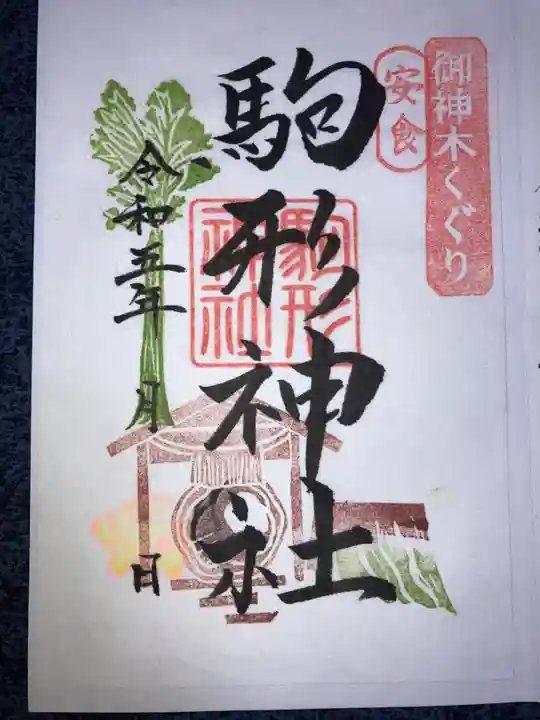 御神木くぐり
安食
駒形神社
駒形
神社
令和五年 月 日